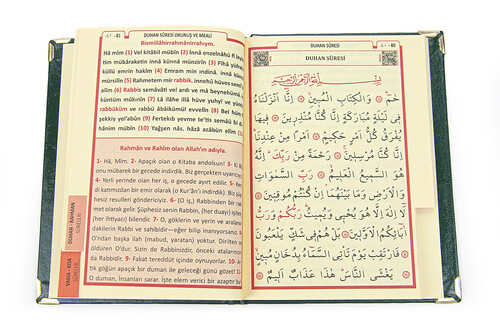 A1 - 81
DUHAN SÛRESİ OKUNUŞ VE MEALİ
Bismillâhirrahmânirrahîym.
Hâ mîm (1) Vel kitâbil mübîn (2) İnnâ enzelnâhü fî
tim mübâraketin innâ künnâ münzirîn (3) Fîhâ yüfra
küllü emrin hakîm (4) Emram min ındinâ. innâ künn
mürsilîn (5) Rahmetem mir rabbik. innehû hüves
alîm (6) Rabbis semâvâti vel ardı ve mâ beynehümâ,
küntüm mûkınîn (7) Lâ ilâhe illâ hüve yuhyî ve yümît,
rabbüküm ve rabbü âbâikümül evvelîn (8) Bel hüm
şekkiy yel'abûn (9) Fertekıb yevme te'tis semâü bi d
hânim mübîn (10) Yağşen nâs. hâzâ azâbün elîm
Rahmân ve Rahîm olan Allah'ın adıyla.
1- Hâ, Mîm. 2- Apaçık olan o Kitaba andolsun! 3-
onu mübarek bir gecede indirdik. Biz gerçekten uyarıcıy
4- Yerli yerinde olan her iş, o gecede ayırt edilir. 5-
di katımızdan bir emir olarak (o Kur'ân'ı indirdik). Biz
hesiz resulleri göndericiyiz. 6- (O iş,) Rabbinden bir rah
met olarak gelir. Şüphesiz senin Rabbin, (her duayı) işiten
(her ihtiyacı) bilendir. 7- O, göklerin ve yerin ve aralarında
dakilerin Rabbi ve sahibidir—eğer bilip inanıyorsanız.
O'ndan başka ilah (mabud, yaratan) yoktur. Dirilten ve
öldüren O'dur. Sizin de Rabbinizdir, önceki atalarınızın
da Rabbidir. 9- Fakat tereddüt içinde oynuyorlar. 10-
tık göğün apaçık bir duman ile geleceği günü gözet!
O duman, insanları sarar. İşte elem verici bir azaptır
DUHAN - RAHMAN
SÛRELERİ
VAKIA - KISA
SÛRELER
DUHAN SÛRESİ
A• - 80
DUHAN SÛRESİ
بِسْمِ اللّٰهِ الرَّحْمٰنِ الرَّحِيمِ
حٰمٓ وَالْكِتَابِ الْمُبِينِ اِنَّٓا اَنْزَلْنَاهُ
فِى لَيْلَةٍ مُبَارَكَةٍ اِنَّا كُنَّا مُنْذِرِينَ فِيهَا
يُفْرَقُ كُلُّ اَمْرٍ حَكِيمٍ اَمْرًا مِنْ عِنْدِنَا
اِنَّا كُنَّا مُرْسِلِينَ رَحْمَةً مِنْ رَبِّكَ اِنَّهُ
هُوَ السَّمِيعُ الْعَلِيمُ رَبِّ السَّمٰوَاتِ
وَالْاَرْضِ وَمَا بَيْنَهُمَا اِنْ كُنْتُمْ مُوقِنِينَ
لَٓا اِلٰهَ اِلَّا هُوَ يُحْيِى وَيُمِيتُ رَبُّكُمْ وَرَبُّ
اٰبَٓائِكُمُ الْاَوَّلِينَ بَلْ هُمْ فِى شَكٍّ يَلْعَبُونَ
فَارْتَقِبْ يَوْمَ تَأْتِى السَّمَٓاءُ بِدُخَانٍ مُبِينٍ
يَغْشَى النَّاسَ هٰذَا عَذَابٌ اَلِيمٌ